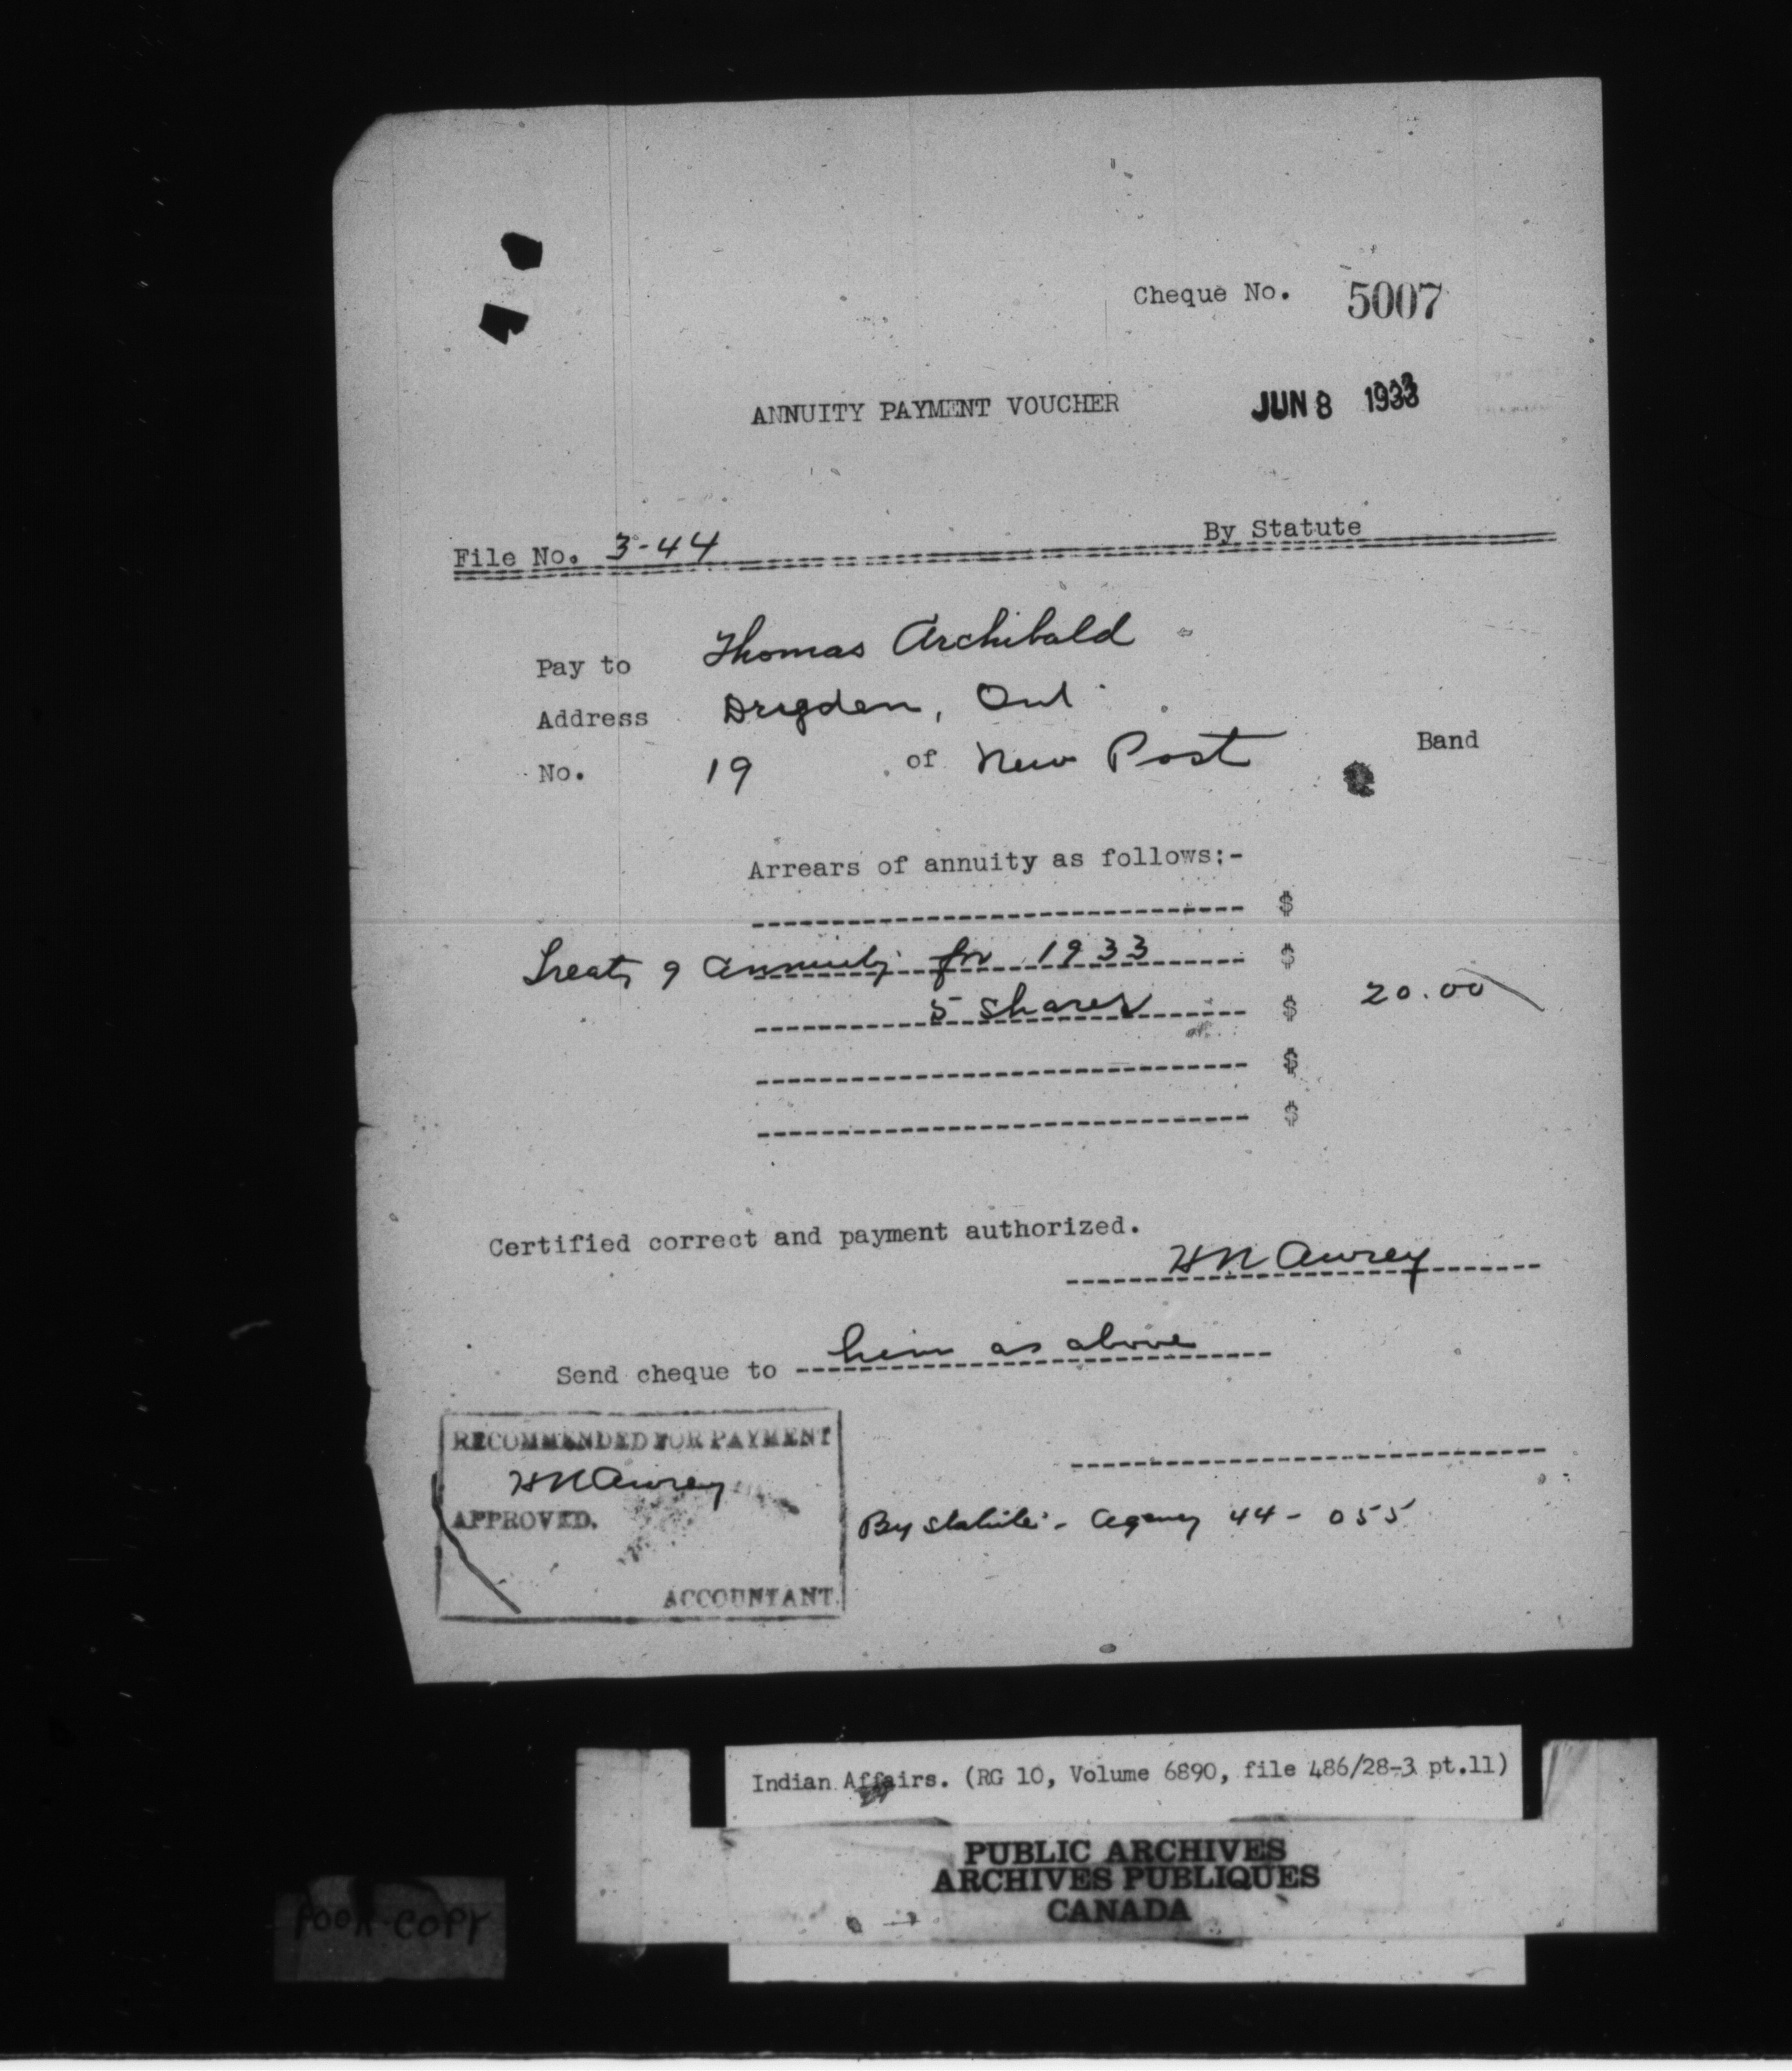 Cheque No. 5007
ANNUITY PAYMENT VOUCHER JUN 8 1933
File No. 3-44 By Statute
Pay to Thomas Archibald
Address Drygden, Ont
No. 19 of New Post Band
Arrears of annuity as follows:-
$
Treaty 9 Annuity for 1933 $
5 shares $ 20.00
$
$
Certified correct and payment authorized.
HN Awrey
Send cheque to him as above
RECOMMENDED FOR PAYMENT
HN Awrey
APPROVED.
By Statute - Agency 44 - 055
ACCOUNTANT.
Indian Affairs. (RG 10, Volume 6890, file 486/28-3 pt.11)
PUBLIC ARCHIVES
ARCHIVES PUBLIQUES
CANADA
POOR COPY